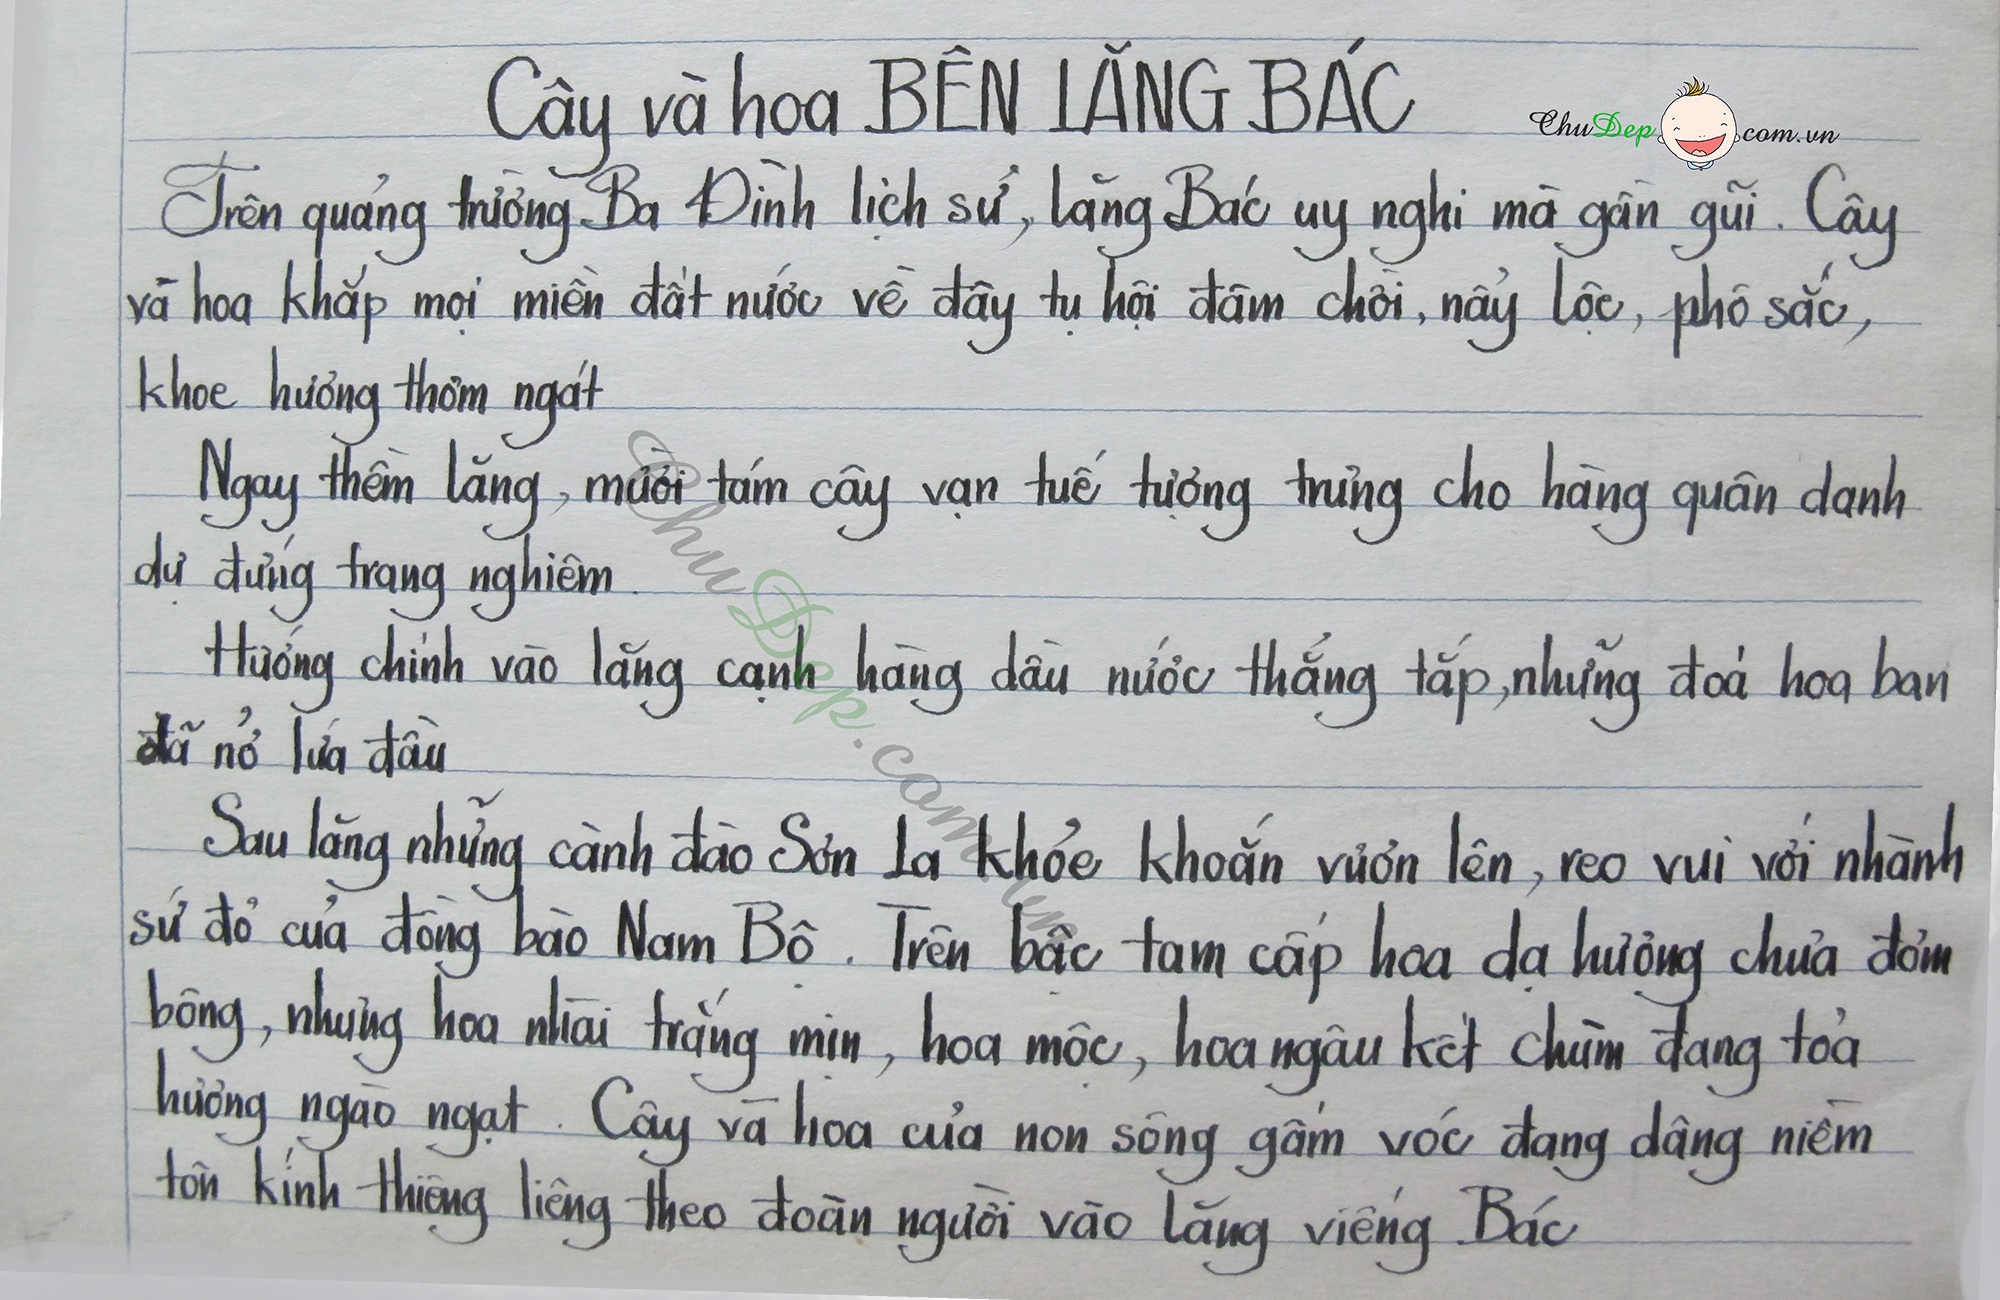 Cây và hoa BÊN LĂNG BÁC
ChuDep.com.vn
Trên quảng trường Ba Đình lịch sử, lăng Bác uy nghi mà gần gũi. Cây
và hoa khắp mọi miền đất nước về đây tụ hội đâm chồi, nảy lộc, phô sắc,
khoe hương thơm ngát
Ngay thềm lăng, mười tám cây vạn tuế tượng trưng cho hàng quân danh
dự đứng trang nghiêm.
Hướng chính vào lăng cạnh hàng dầu nước thẳng tắp, những đoá hoa ban
đã nở lứa đầu
Sau lăng những cành đào Sơn La khỏe khoắn vươn lên, reo vui với nhành
sứ đỏ của đồng bào Nam Bộ. Trên bậc tam cấp hoa dạ hương chưa đơm
bông, nhưng hoa nhài trắng mịn, hoa mộc, hoa ngâu kết chùm đang toả
hương ngào ngạt. Cây và hoa của non sông gấm vóc đang dâng niềm
tôn kính thiêng liêng theo đoàn người vào lăng viếng Bác
ChuDep.com.vn